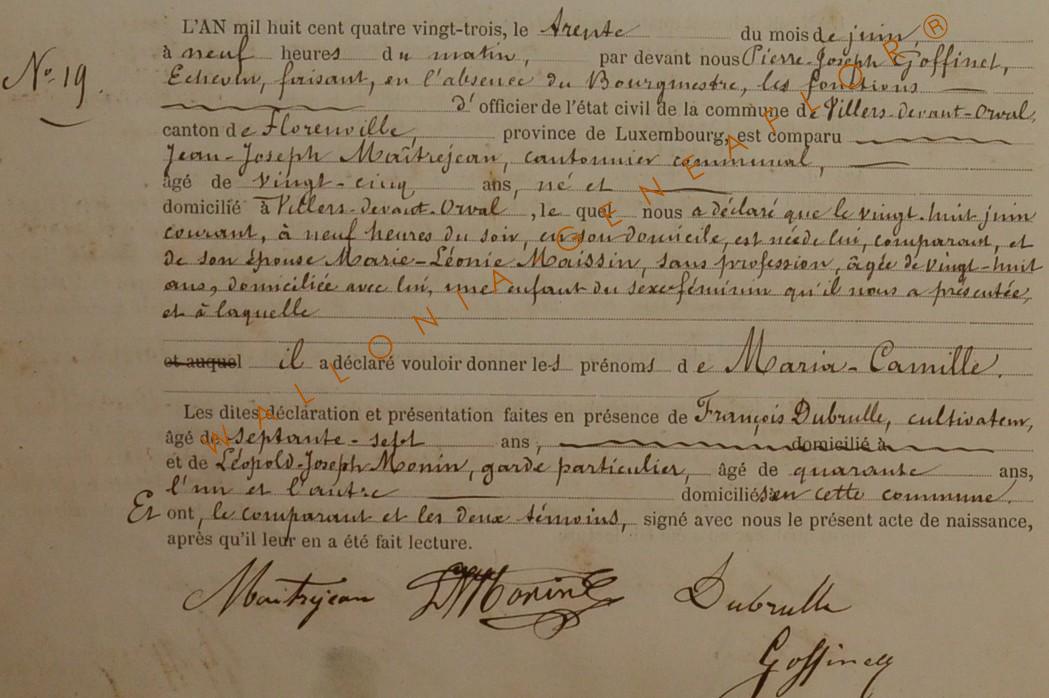 L'AN mil huit cent quatre vingt-trois, le trente du mois de juin,
N° 19.
à neuf heures du matin, par devant nous Pierre-Joseph Goffinet,
Echevin, faisant, en l'absence du Bourgmestre, les fonctions
d'officier de l'état civil de la commune de Villers-devant-Orval,
canton de Florenville, province de Luxembourg, est comparu
Jean-Joseph Maîtrejean, cantonnier communal,
âgé de vingt-cinq ans, né et
domicilié à Villers-devant-Orval, le quel nous a déclaré que le vingt-huit juin
courant, à neuf heures du soir, en son domicile, est née de lui, comparant, et
de son épouse Marie-Léonie Maissin, sans profession, âgée de vingt-huit
ans, domiciliée avec lui, une enfant du sexe féminin qu'il nous a présentée,
et à laquelle
et auquel il a déclaré vouloir donner les prénoms de Maria-Camille.
Les dites déclaration et présentation faites en présence de François Dubrulle, cultivateur,
âgé de septante-sept ans, domicilié à
et de Léopold-Joseph Monin, garde particulier, âgé de quarante ans,
l'un et l'autre domiciliés en cette commune.
Et ont, le comparant et les deux témoins, signé avec nous le présent acte de naissance,
après qu'il leur en a été fait lecture.
Maitrejean Monin Dubrulle
Goffinet
WALLONIA GENEAPLOR ®